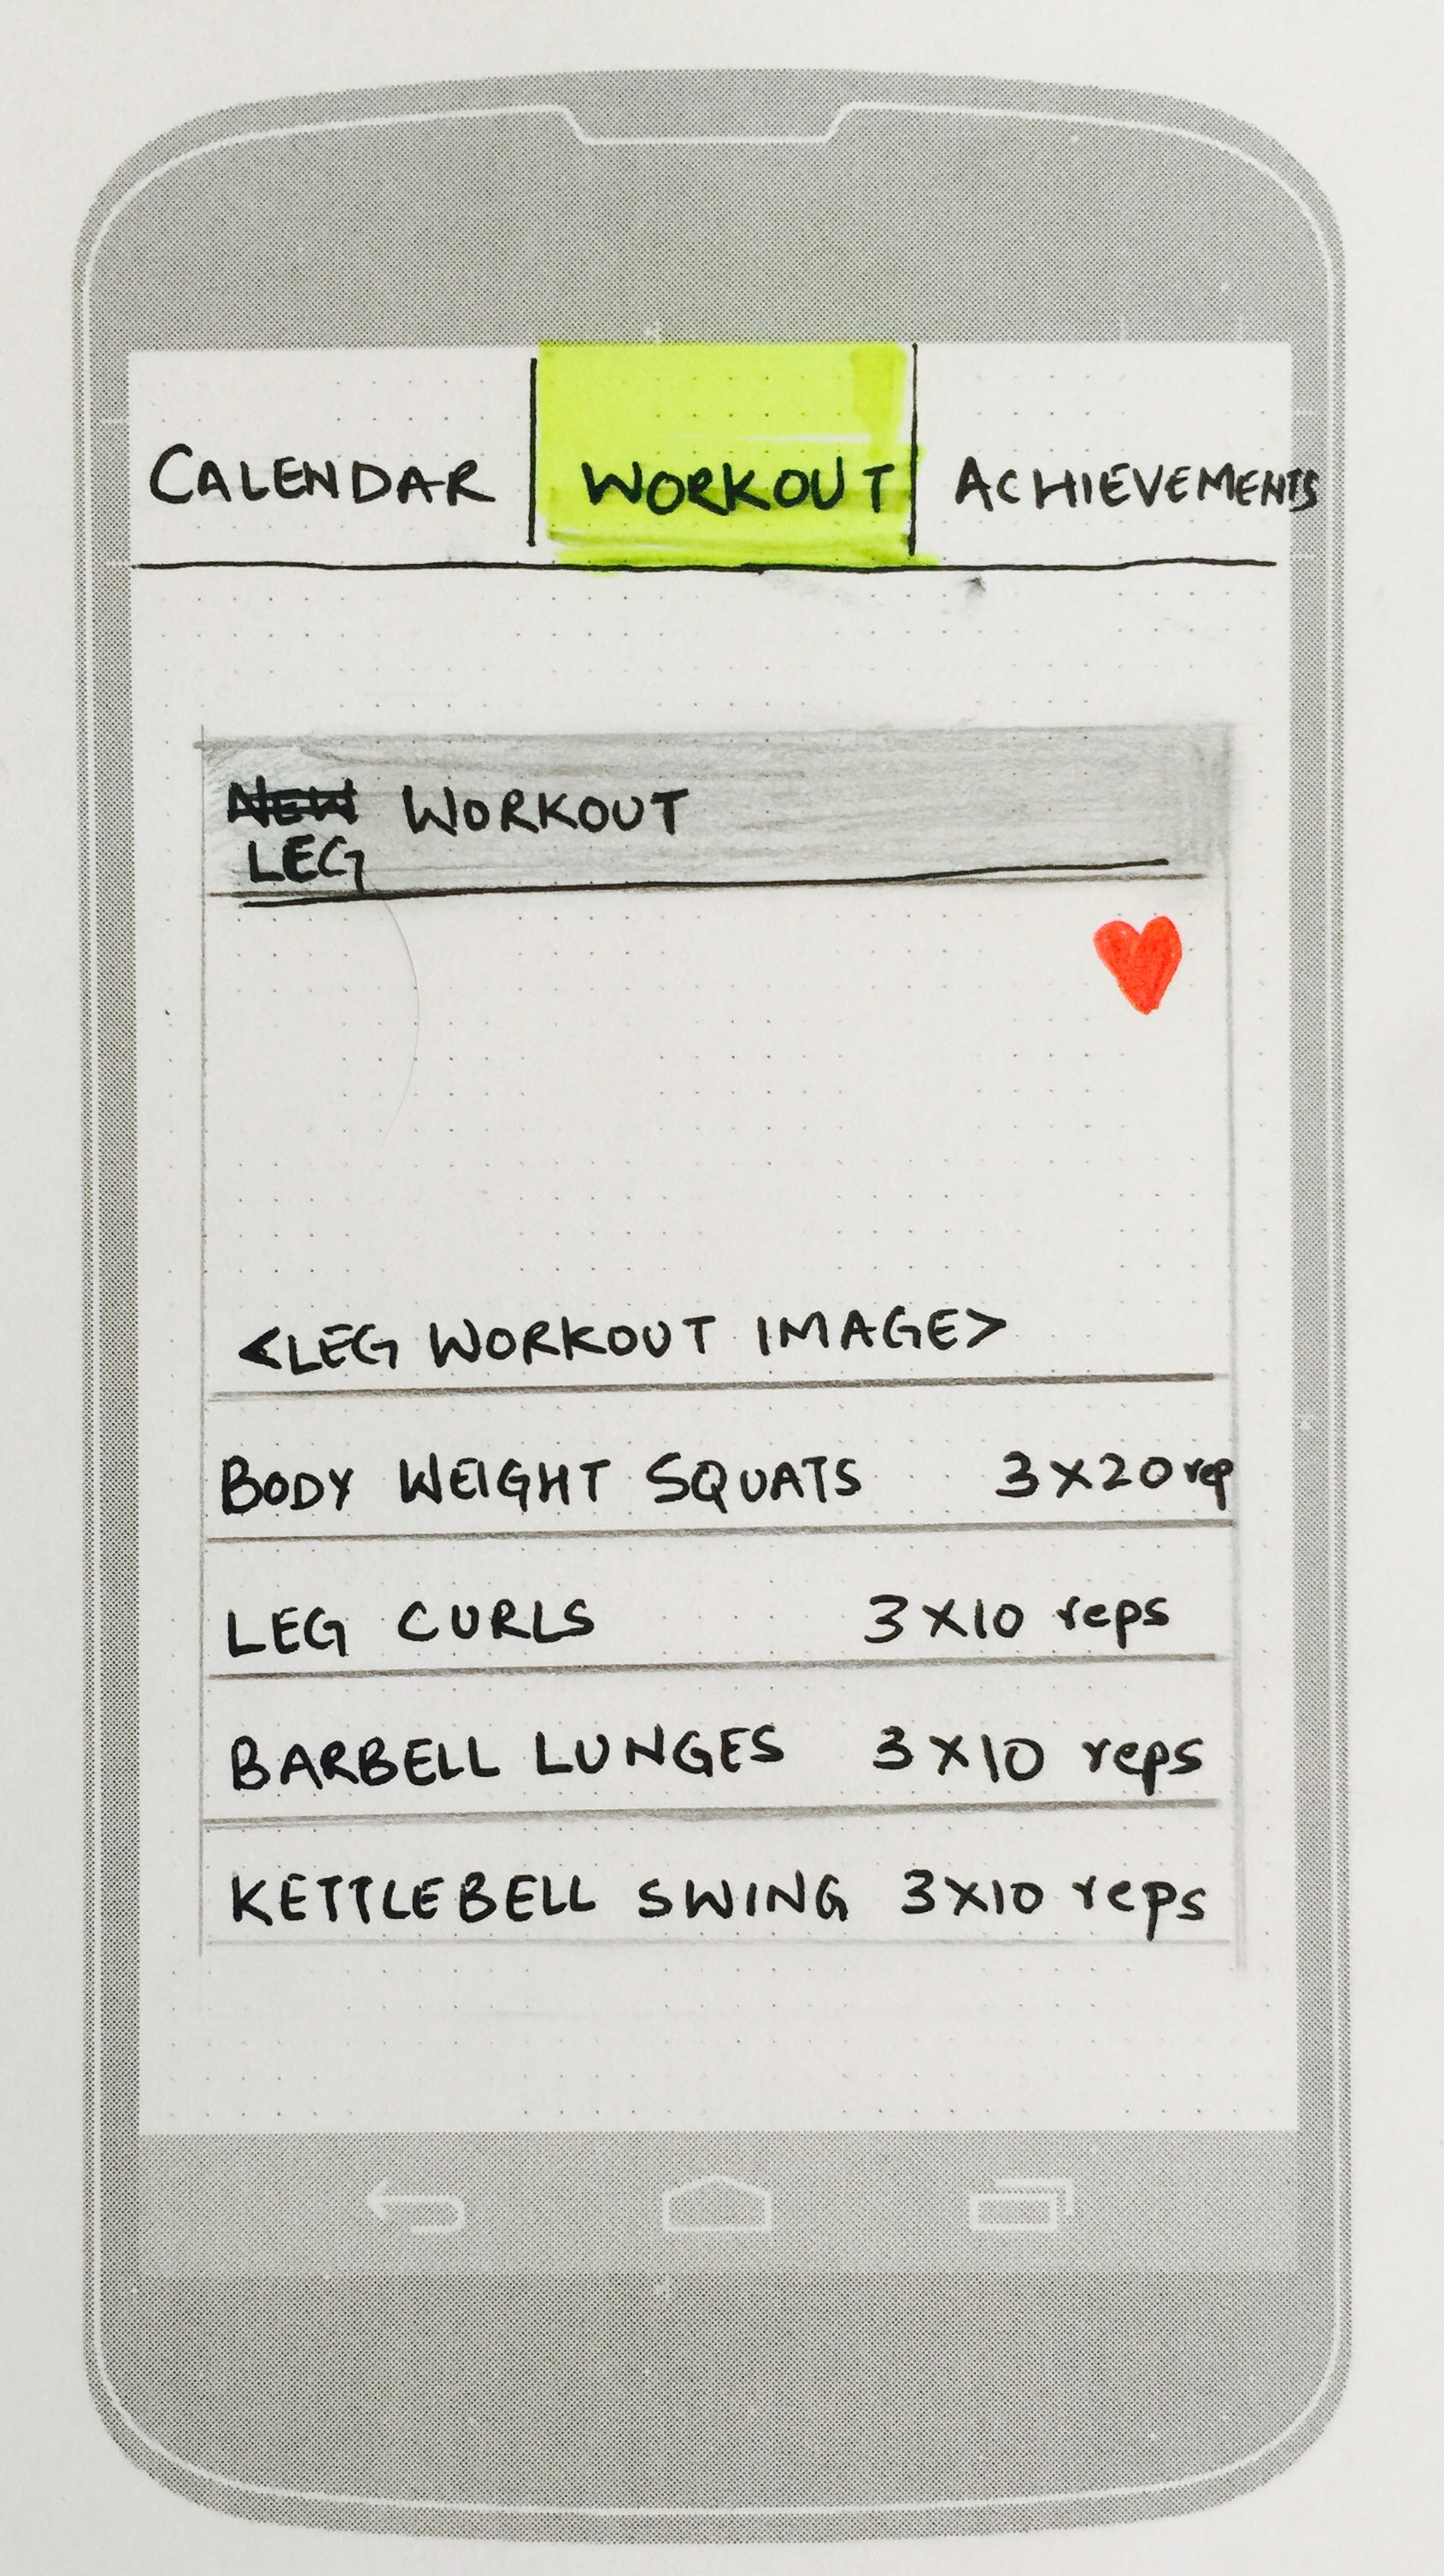 CALENDAR WORKOUT ACHIEVEMENTS
NEW WORKOUT
LEG
<LEG WORKOUT IMAGE>
BODY WEIGHT SQUATS 3X20 rep
LEG CURLS 3X10 reps
BARBELL LUNGES 3X10 reps
KETTLEBELL SWING 3X10 reps